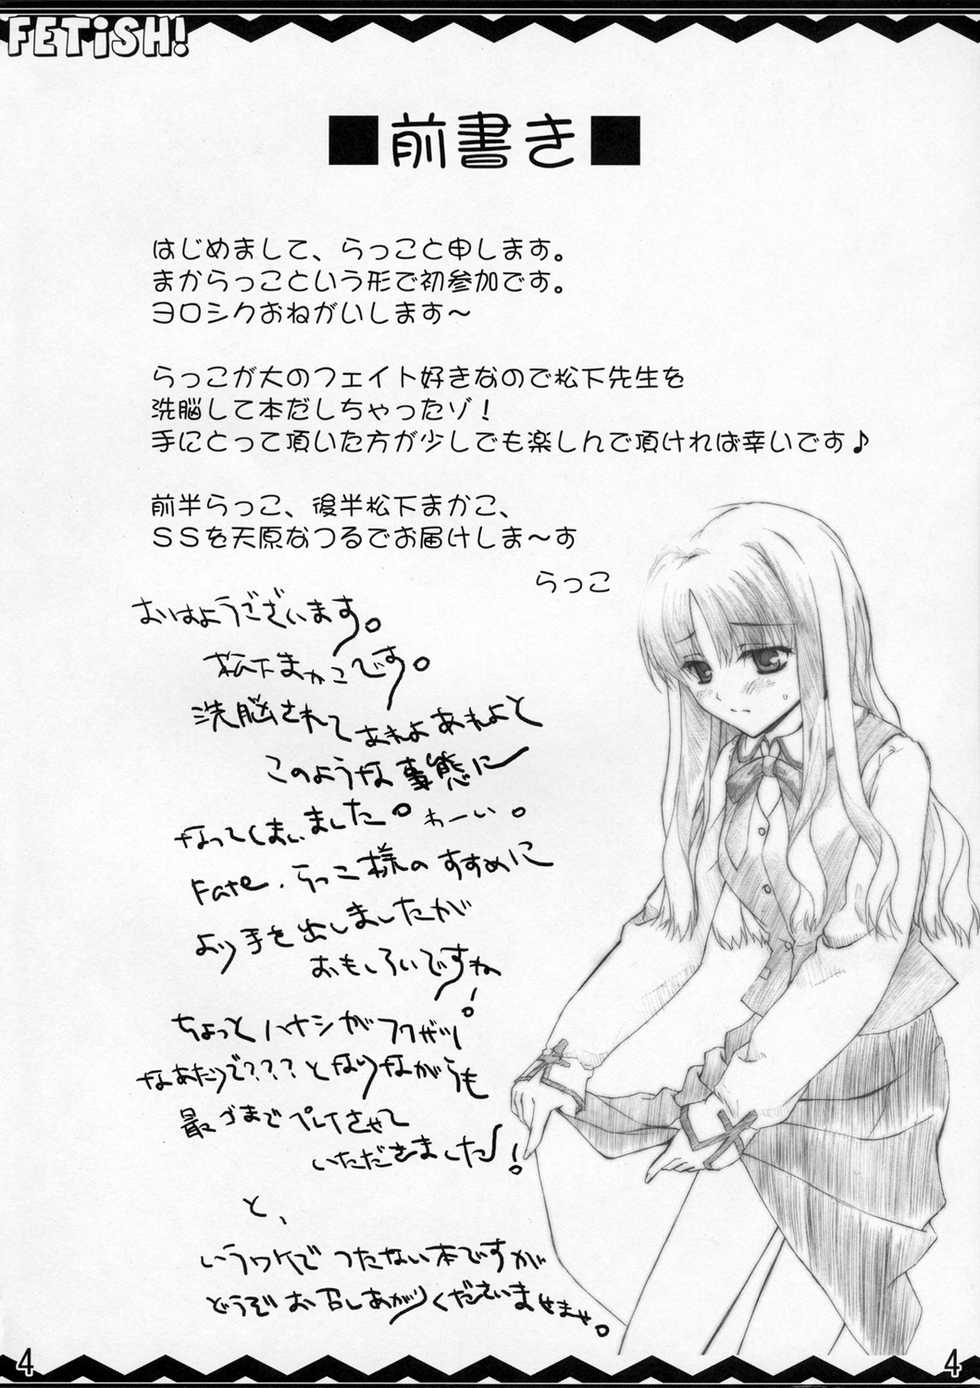 FETiSH!
■前書き■
はじめまして、らっこと申します。
まからっこという形で初参加です。
ヨロシクおねがいします～
らっこが大のフェイト好きなので松下先生を
洗脳して本だしちゃったゾ！
手にとって頂いた方が少しでも楽しんで頂ければ幸いです♪
前半らっこ、後半松下まかこ、
ＳＳを天原なつるでお届けしま～す
らっこ
おはようございます。
松下まかこです。
洗脳されてあれよあれよと
このような事態に
なってしまいました。わーい。
Fate、らっこ様のすすめに
より手を出しましたが
おもしろいですね!
ちょっとハナシがフクザツ
なあたりで???となりながらも
最づまでプレイさせて
いただきました!
と、
いうワケでつたない本ですが
どうぞお召しあがりくださいませませ。
4
4